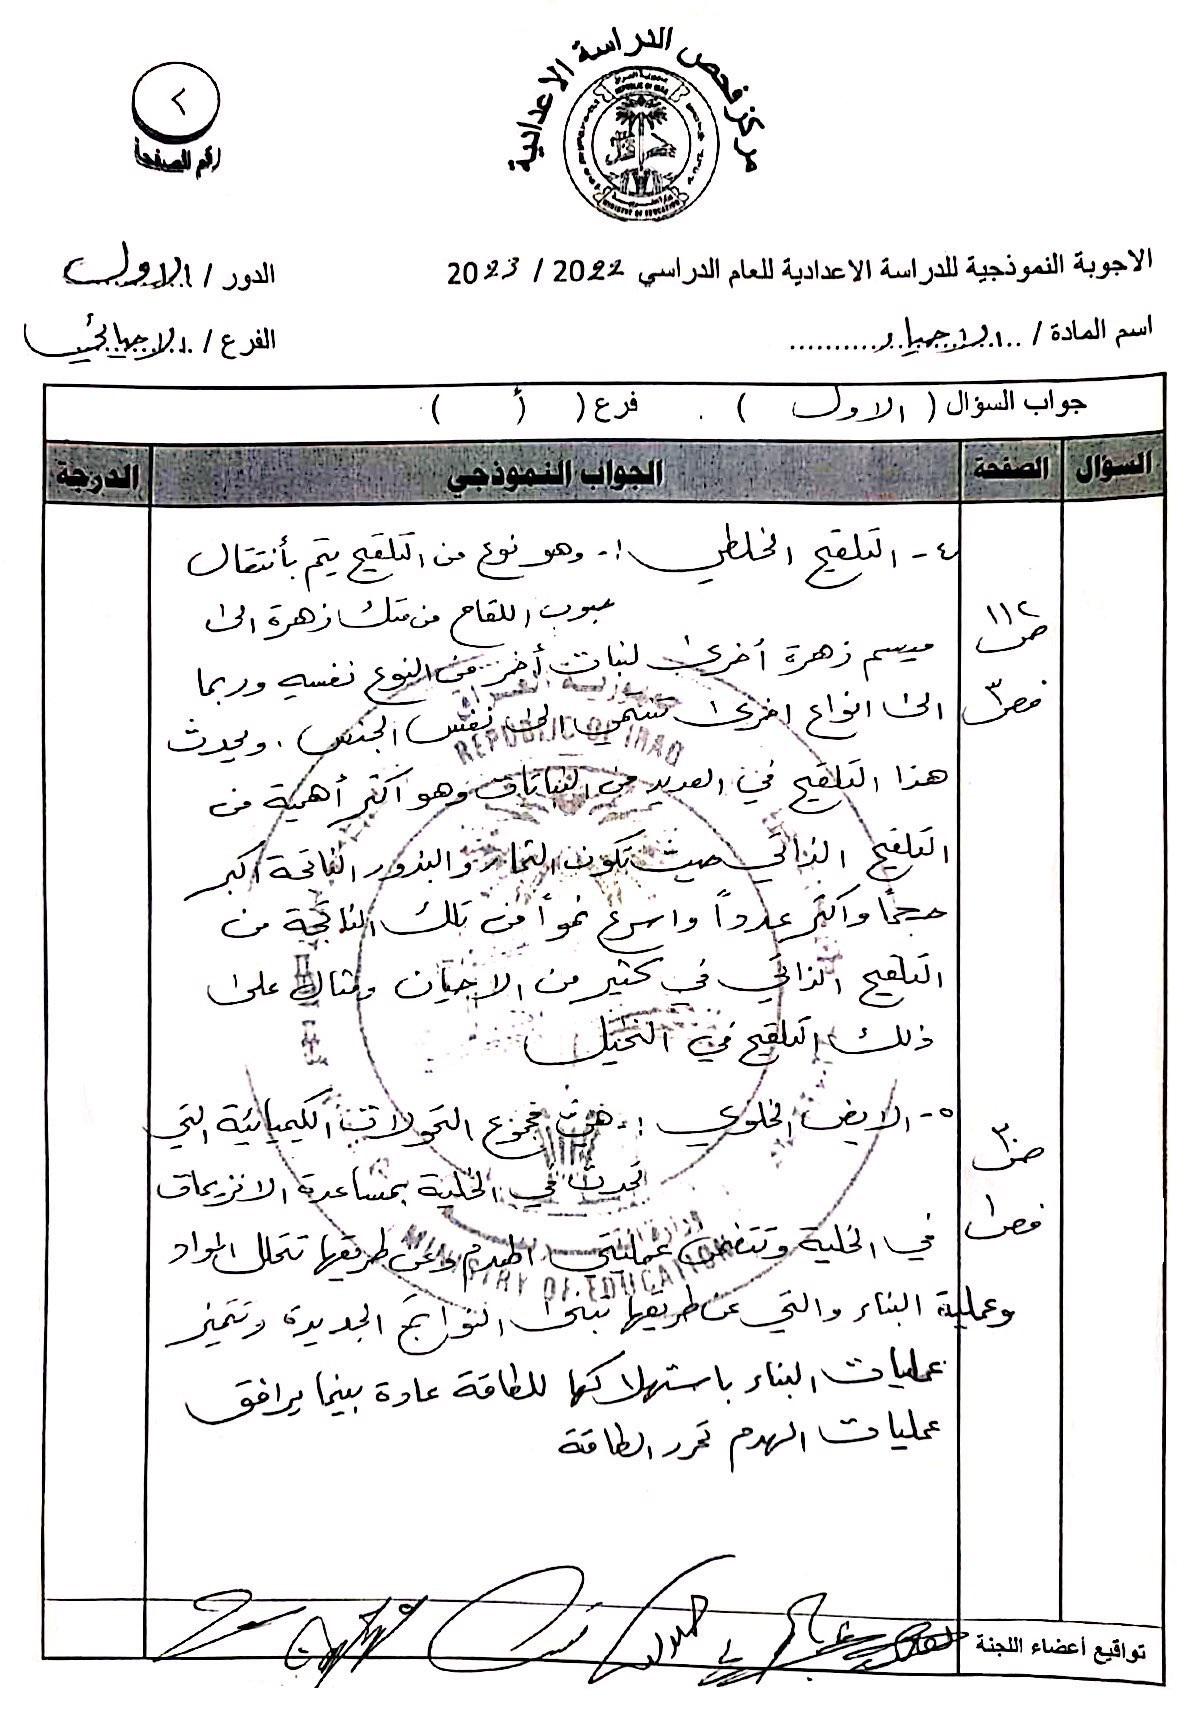 مركز فحص الدراسة الاعدادية
٢
رقم الصفحة
الاجوبة النموذجية للدراسة الاعدادية للعام الدراسي 2022 / 2023
الدور / الاول
اسم المادة / الاحياء
الفرع / الاحيائي
جواب السؤال ( الاول ) . فرع ( أ )
السؤال الصفحة الجواب النموذجي الدرجة
٤- التلقيح الخلطي :- وهو نوع من التلقيح يتم بأنتقال
حبوب اللقاح من متك زهرة الى
ص ١١٢
ميسم زهرة أخرى لنبات أخر من النوع نفسه وربما
ف ص ٣
الى انواع اخرى تنتمي الى نفس الجنس . ويحدث
هذا التلقيح في العديد من النباتات وهو اكثر أهمية من
التلقيح الذاتي حيث تكون الثمار والبذور الناتجة اكبر
حجماً واكثر عدداً واسرع نمواً من تلك الناتجة من
التلقيح الذاتي في كثير من الاحيان ومثال على
ذلك التلقيح في النخيل
٥- الايض الخلوي :- هي مجموع التحولات الكيميائية التي
ص ٣٠
تحدث في الخلية بمساعدة الانزيمات
ف ص ١
في الخلية وتتضمن عمليتي الهدم وعن طريقها تتحلل المواد
وعملية البناء والتي عن طريقها تبنى النواتج الجديدة وتتميز
عمليات البناء باستهلاكها للطاقة عادة بينما يرافق
عمليات الهدم تحرر الطاقة
REPUBLIC OF IRAQ
MINISTRY OF EDUCATION
تواقيع أعضاء اللجنة